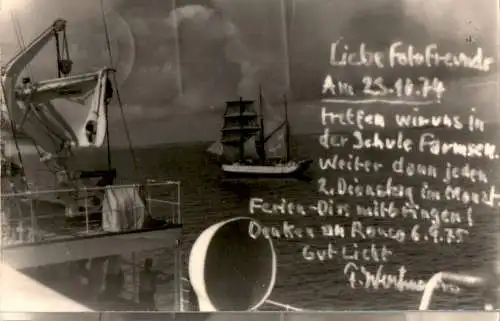 Liebe Fotofreunde
Am 23.10.74
treffen wir uns in
der Schule Farmsen.
Weiter dann jeden
2. Dienstag im Monat
Ferien-Dias mitbringen!
Denken an Ronco 6.9.75
Gut Licht